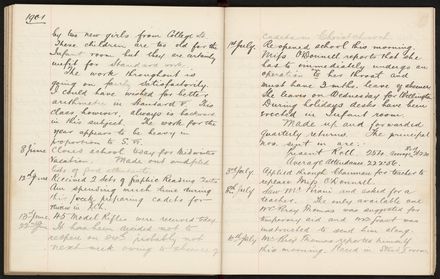 1901
by two new girls from College St.
These children are too old for the
Infant room but they are certainly
unfit for Standard work.
The work throughout is
going on satisfactorily.
I could have wished for better
arithmetic in Standard V. This
class however, always is backward
in this subject. The work for the
year appears to be heavy in
proportion to S. V.
8 June Closed school today for Midwinter
Vacation. Made out and filed
Received 2 sets of Public Reading
Am spending much time during
this week preparing cadets for
June 45 Model Rifles were received today
It has been decided not to
reopen on probably not
next week owing to absence of
Cadets in Christchurch
1st July Re-opened school this morning.
Miss O'Donnell reports that she
has to immediately undergo an
operation to her throat and
must have 3 mths. leave of absence
She leaves on Wednesday for Wellington
During holidays desks have been
erected in Infant room.
Made up and forwarded
Quarterly returns. The principal
nos. sent in are:
Present Roll
Average Attendance
July Applied through Chairman for teacher to
replace Miss O'Donnell.
July Saw Mr and asked for a
teacher. The only available one
Mr Percy Thomas was suggested for
temporary aid and was
instructed to send him along.
July Mr Percy Thomas reported himself
this morning. Placed in room